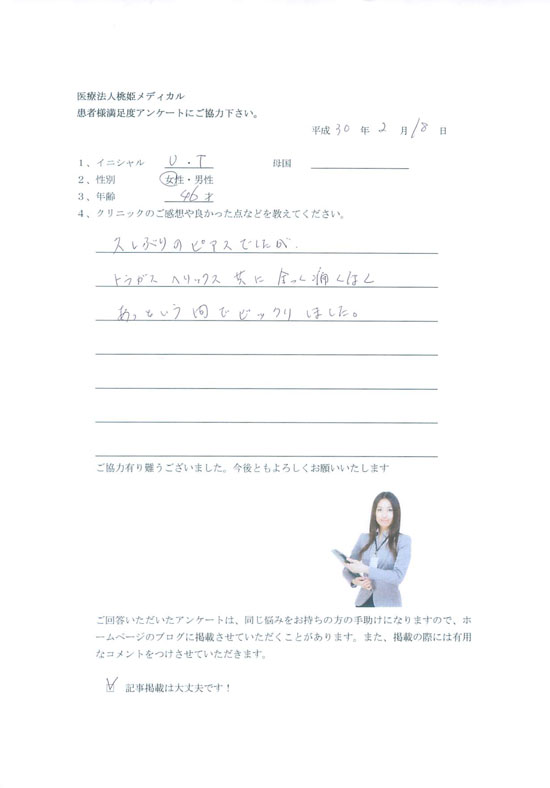 医療法人桃姫メディカル
患者様満足度アンケートにご協力下さい。
平成 30 年 2 月 18 日
1、イニシャル U・T 母国
2、性別 女性・男性
3、年齢 46才
4、クリニックのご感想や良かった点などを教えてください。
久しぶりのピアスでしたが、
トラガス ヘリックス 共に 全く痛くなく
あっという間でビックリしました。
ご協力有り難うございました。今後ともよろしくお願いいたします
ご回答いただいたアンケートは、同じ悩みをお持ちの方の手助けになりますので、ホ
ームページのブログに掲載させていただくことがあります。また、掲載の際には有用
なコメントをつけさせていただきます。
記事掲載は大丈夫です！